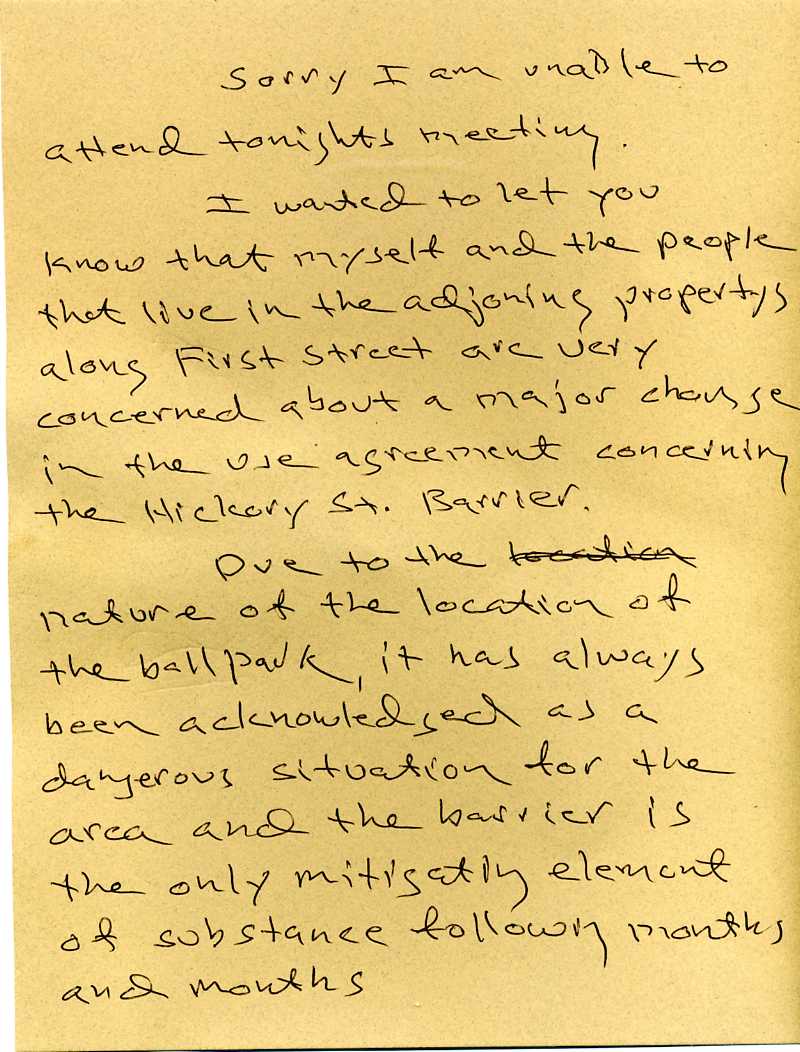 Sorry I am unable to
attend tonights meeting.
I wanted to let you
know that myself and the people
that live in the adjoning propertys
along First Street are very
concerned about a major change
in the use agreement concerning
the Hickory St. Barrier.
Due to the location
nature of the location of
the ballpark, it has always
been acknowledged as a
dangerous situation for the
area and the barrier is
the only mitigatly element
of substance followng months
and months